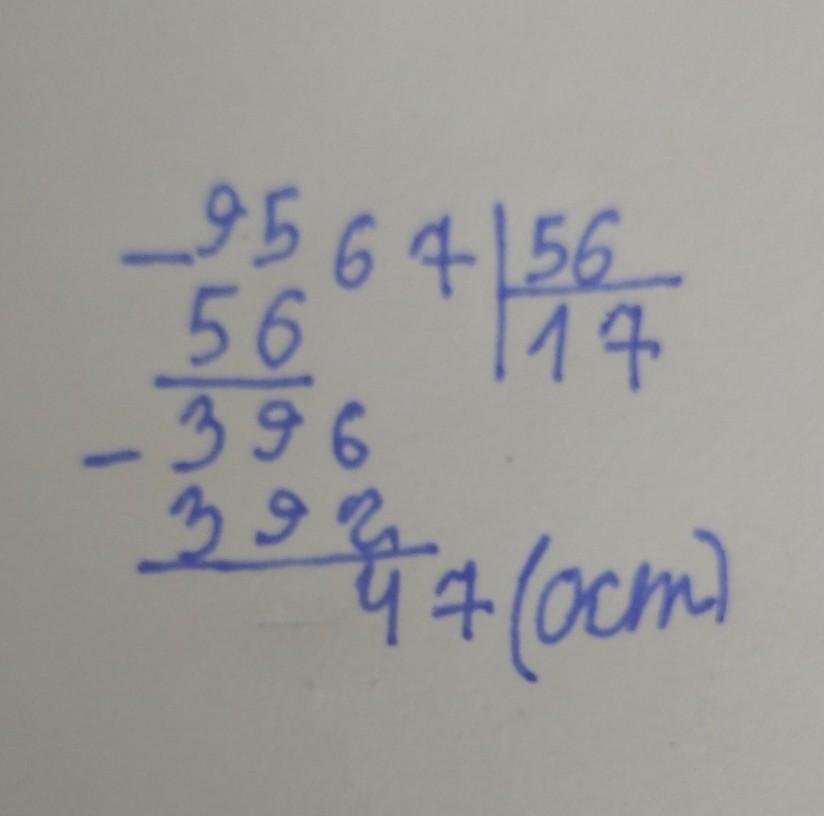 - 9567 | 56
56 | 17
- 396
392
47 (ост)